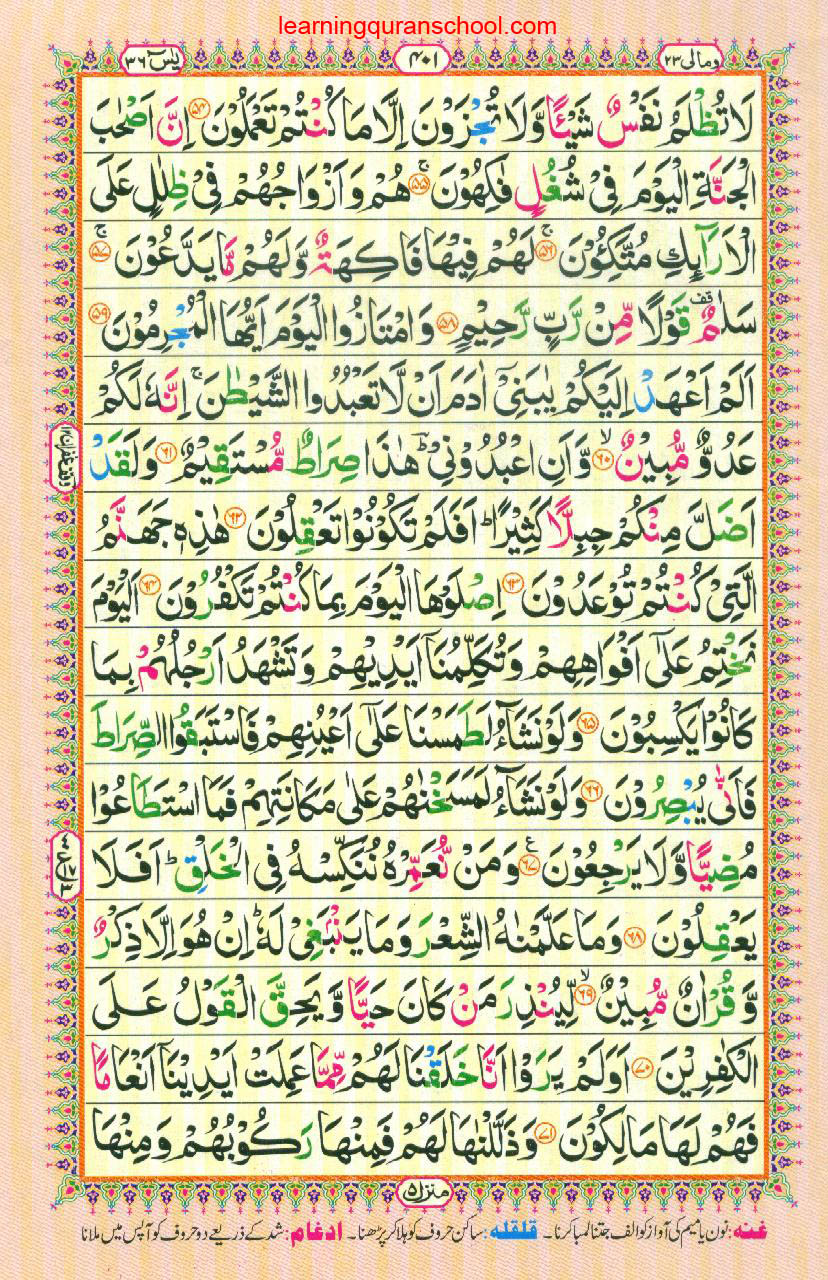 learningquranschool.com
وما لی ۲۳
۴۰۱
یٰسٓ ۳۶
لَا تُظْلَمُ نَفْسٌ شَیْـًٔا وَّلَا تُجْزَوْنَ اِلَّا مَا كُنْتُمْ تَعْمَلُوْنَ ﴿۵۴﴾ اِنَّ اَصْحٰبَ
الْجَنَّةِ الْیَوْمَ فِیْ شُغُلٍ فٰكِهُوْنَ ۚ ﴿۵۵﴾ هُمْ وَاَزْوَاجُهُمْ فِیْ ظِلٰلٍ عَلَی
الْاَرَآىِٕكِ مُتَّكِـُٔوْنَ ۚ ﴿۵۶﴾ لَهُمْ فِیْهَا فَاكِهَةٌ وَّلَهُمْ مَّا یَدَّعُوْنَ ۚ ﴿۵۷﴾
سَلٰمٌ قف قَوْلًا مِّنْ رَّبٍّ رَّحِیْمٍ ﴿۵۸﴾ وَامْتَازُوا الْیَوْمَ اَیُّهَا الْمُجْرِمُوْنَ ﴿۵۹﴾
اَلَمْ اَعْهَدْ اِلَیْكُمْ یٰبَنِیْۤ اٰدَمَ اَنْ لَّا تَعْبُدُوا الشَّیْطٰنَ ۚ اِنَّهٗ لَكُمْ
عَدُوٌّ مُّبِیْنٌ ۙ ﴿۶۰﴾ وَّاَنِ اعْبُدُوْنِیْ ؔؕ هٰذَا صِرَاطٌ مُّسْتَقِیْمٌ ﴿۶۱﴾ وَلَقَدْ
اَضَلَّ مِنْكُمْ جِبِلًّا كَثِیْرًا ؕ اَفَلَمْ تَكُوْنُوْا تَعْقِلُوْنَ ﴿۶۲﴾ هٰذِهٖ جَهَنَّمُ
الَّتِیْ كُنْتُمْ تُوْعَدُوْنَ ﴿۶۳﴾ اِصْلَوْهَا الْیَوْمَ بِمَا كُنْتُمْ تَكْفُرُوْنَ ﴿۶۴﴾ اَلْیَوْمَ
نَخْتِمُ عَلٰۤی اَفْوَاهِهِمْ وَتُكَلِّمُنَاۤ اَیْدِیْهِمْ وَتَشْهَدُ اَرْجُلُهُمْ بِمَا
كَانُوْا یَكْسِبُوْنَ ﴿۶۵﴾ وَلَوْ نَشَآءُ لَطَمَسْنَا عَلٰۤی اَعْیُنِهِمْ فَاسْتَبَقُوا الصِّرَاطَ
فَاَنّٰی یُبْصِرُوْنَ ﴿۶۶﴾ وَلَوْ نَشَآءُ لَمَسَخْنٰهُمْ عَلٰی مَكَانَتِهِمْ فَمَا اسْتَطَاعُوْا
مُضِیًّا وَّلَا یَرْجِعُوْنَ ﴿۶۷﴾ ع وَمَنْ نُّعَمِّرْهُ نُنَكِّسْهُ فِی الْخَلْقِ ؕ اَفَلَا
یَعْقِلُوْنَ ﴿۶۸﴾ وَمَا عَلَّمْنٰهُ الشِّعْرَ وَمَا یَنْۢبَغِیْ لَهٗ ؕ اِنْ هُوَ اِلَّا ذِكْرٌ
وَّقُرْاٰنٌ مُّبِیْنٌ ۙ ﴿۶۹﴾ لِّیُنْذِرَ مَنْ كَانَ حَیًّا وَّیَحِقَّ الْقَوْلُ عَلَی
الْكٰفِرِیْنَ ﴿۷۰﴾ اَوَلَمْ یَرَوْا اَنَّا خَلَقْنَا لَهُمْ مِّمَّا عَمِلَتْ اَیْدِیْنَاۤ اَنْعَامًا
فَهُمْ لَهَا مَالِكُوْنَ ﴿۷۱﴾ وَذَلَّلْنٰهَا لَهُمْ فَمِنْهَا رَكُوْبُهُمْ وَمِنْهَا
منزل ۵
غنه: نون یا میم کی آواز کو الف جتنا لمبا کرنا۔ قلقله: ساکن حروف کو ہلا کر پڑھنا۔ ادغام: شد کے ذریعے دو حروف کو آپس میں ملانا